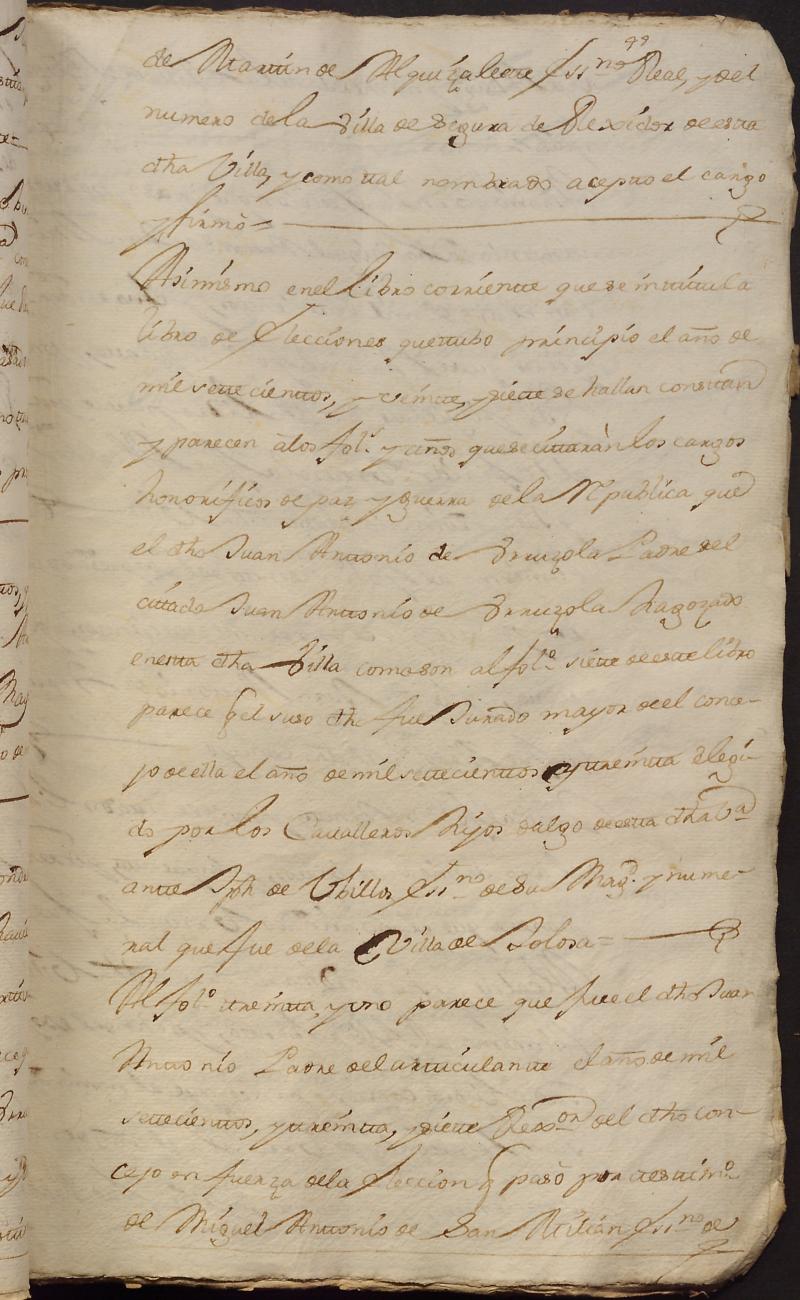 de Martin de Alquizalete Ess.no Real, y del
numero de la Villa de Segura de Rexidor de esta
dha Villa, y como tal nombrado acepto el cargo
y firmò =
Asimismo en el Libro corriente que se intitula
libro de Elecciones que tubo principio el año de
mil sette cientos, y veinte, y siete se hallan constan
y parecen à los fol.s y años que se cittaràn los cargos
honorificos de paz y guerra de la Republica que
el dho Juan Antonio de Vruzola Padre del
cittado Juan Antonio de Vruzola ha gozado
en esta dha Villa como son al fol.o siete de este libro
parece q el suso dho fue Jurado mayor de el conce-
jo de ella el año de mil settecientos y treinta elegi-
do por los Cavalleros hijos dalgo de esta dha V.a
ante Jph de Vbillos Ess.no de Su Mag.d y nume-
ral que fue de la Villa de Tolosa =
Al fol.o treinta, y uno parece que fue el dho Juan
Antonio Padre del articulante el año de mil
settecientos, y treinta, y siete Rexor del dho con-
cejo en fuerza de la eleccion q pasò por testim.o
de Miguel Antonio de San Millan Ess.no de